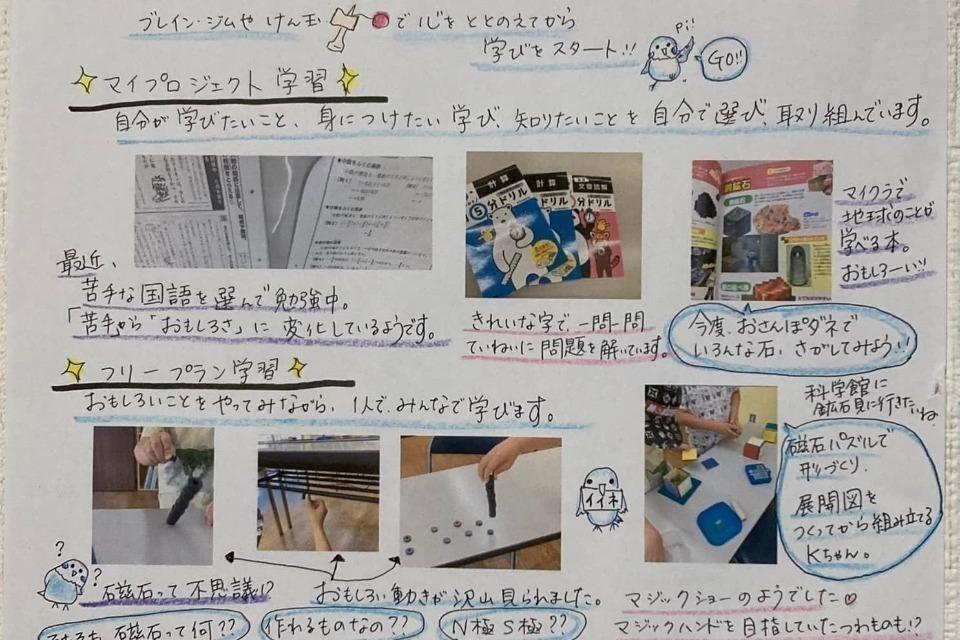 ブレイン・ジムや けん玉 で 心を ととのえてから
学びを スタート!!
Pi!
GO!!
マイプロジェクト学習
自分が 学びたいこと、身につけたい 学び、知りたいことを 自分で選び、取り組んでいます。
計算
計算
文章読解
5分ドリル
分ドリル
分ドリル
銅鉱石
マイクラで
地球のことが
学べる本。
おもしろーい!!
最近、
苦手な国語を選んで勉強中。
「苦手」から“おもしろさ”に 変化しているようです。
きれいな字で、一問一問
ていねいに 問題を解いています。
今度、おさんぽダネで
いろんな石、さがしてみよう!!
フリープラン学習
おもしろいことをやってみながら、1人で、みんなで学びます。
科学館に
鉱石見に行きたいね
磁石パズルで
形づくり、
展開図を
つくってから組み立てる
Kちゃん。
イイネ
?
?
磁石って不思議!?
おもしろい動きが沢山見られました。
マジックショーのようでした♡
マジックハンドを目指していたつわものも!?
そもそも 磁石って何??
作れるものなの??
N極S極??